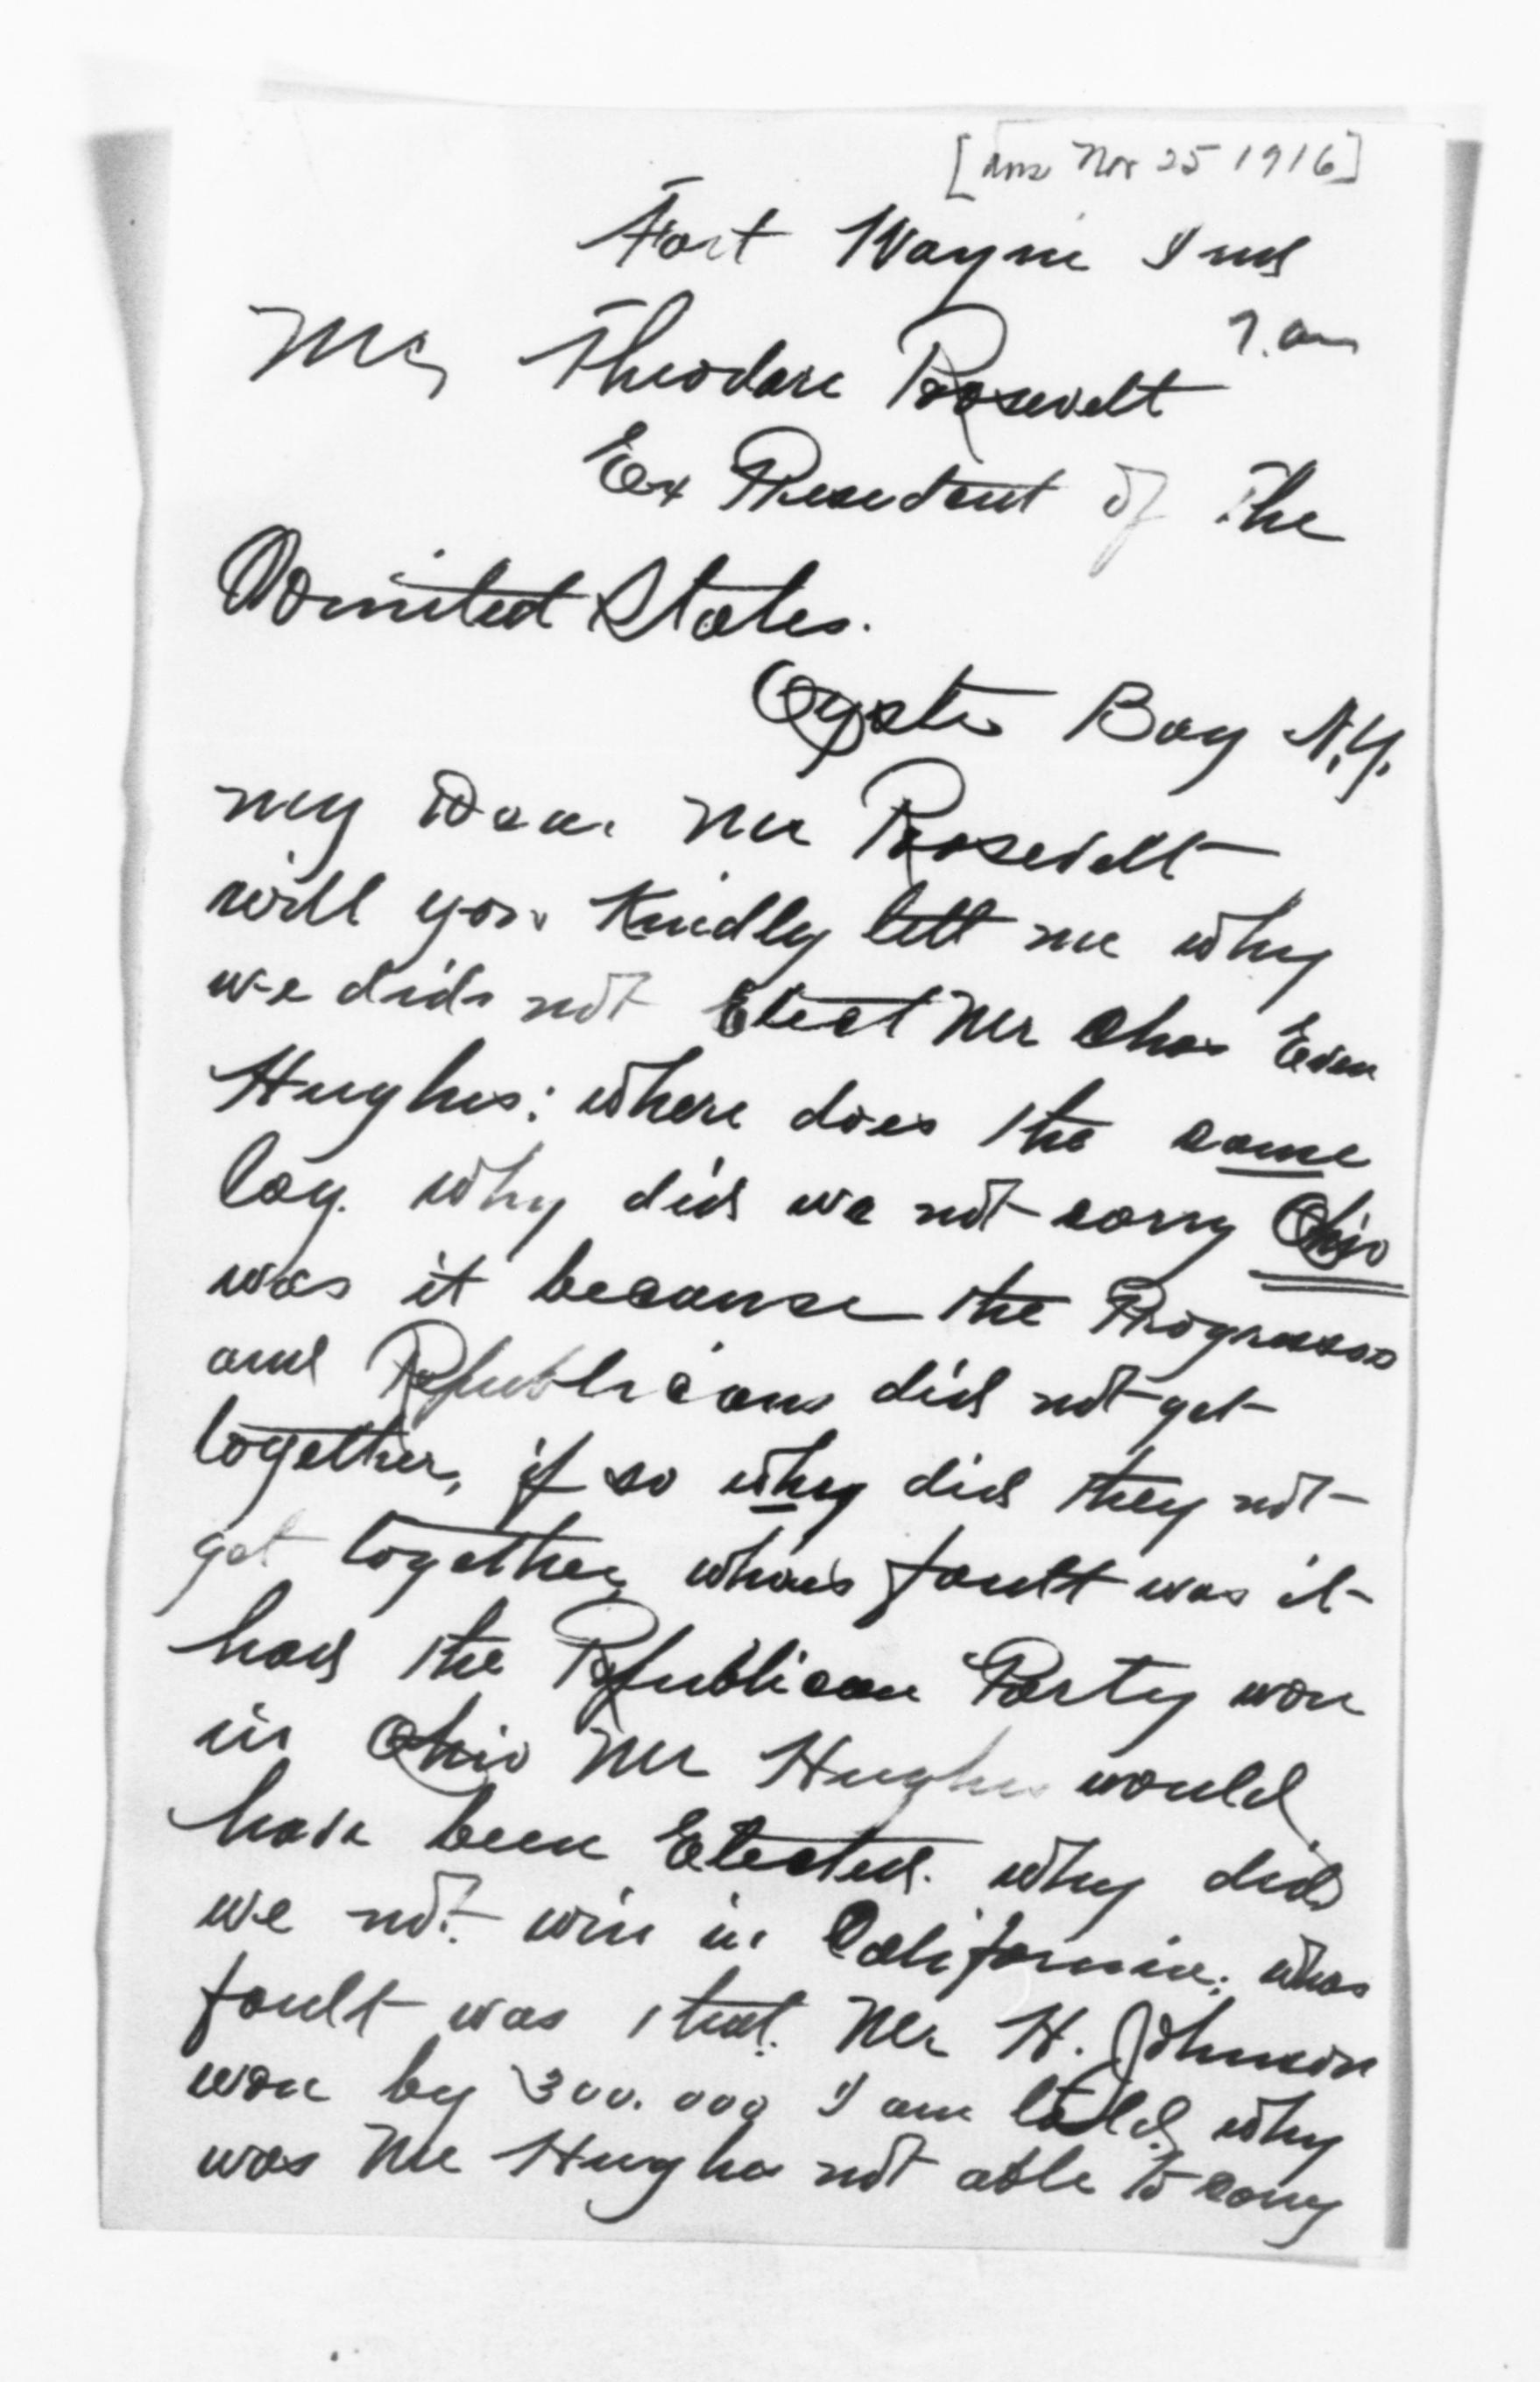 [Ans Nov 25 1916]
Fort Wayne Ind
7. am
Mr, Theodore Roosevelt
Ex President of The
United States.
Oyster Bay N.Y.
my Dear Mr Rosevelt
will you Kindly tell me why
we did not Elect Mr Chas Even
Hughes: where does the cause
lay. why did we not carry Ohio
was it because the
and Republicans did not get
together, if so why did they not
get together, whos fault was it
had the Republican Party won
in Ohio Mr Hughes would
have been Elected. why did
we not win in California; whos
fault was that. Mr H. Johnson
won by 300.000 I am told, why
was Mr Hughes not able to carry